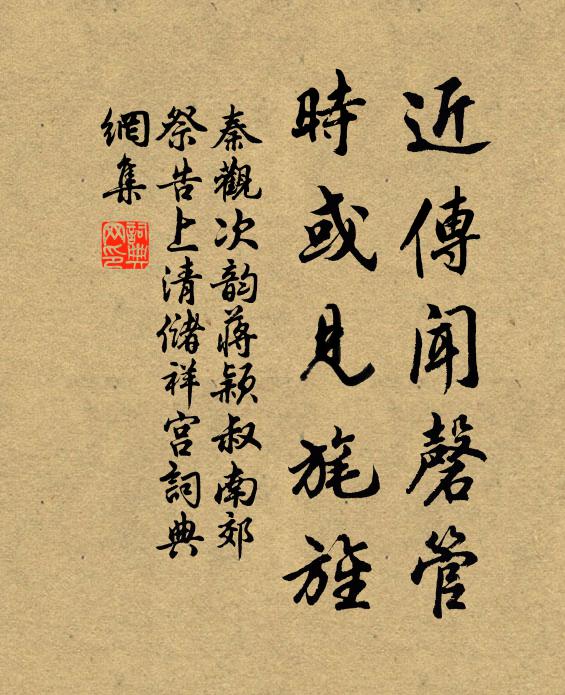 近傳聞磬管
時或見旄旌
秦觀次韵蔣穎叔南郊
祭告上清儲祥宮詞典
網集
詞典
网印